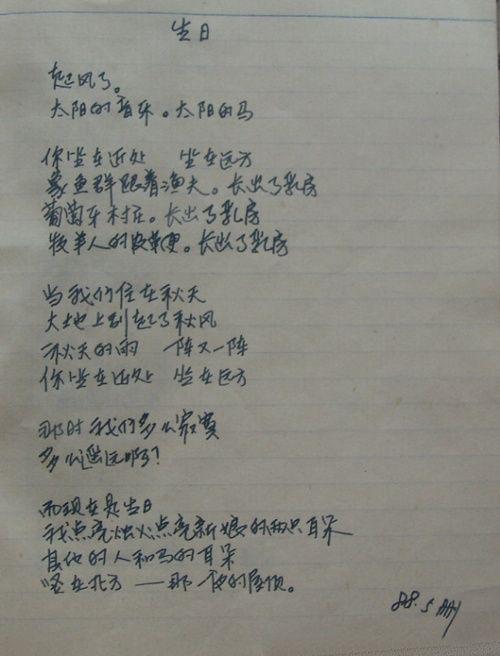 生日
起风了。
太阳的音乐。太阳的马
你坐在近处 坐在远方
象鱼群跟着渔夫。长出了乳房
葡萄牙村庄。长出了乳房
牧羊人的皮鞭。长出了乳房
当我们住在秋天
大地上刮起了秋风
秋天的雨 一阵又一阵
你坐在近处 坐在远方
那时我们多么寂寞
多么遥远啊?
而现在是生日
我点亮烛火点亮新娘的两只耳朵
其他的人和马的耳朵
竖在北方——那一夜的屋顶。
88.5